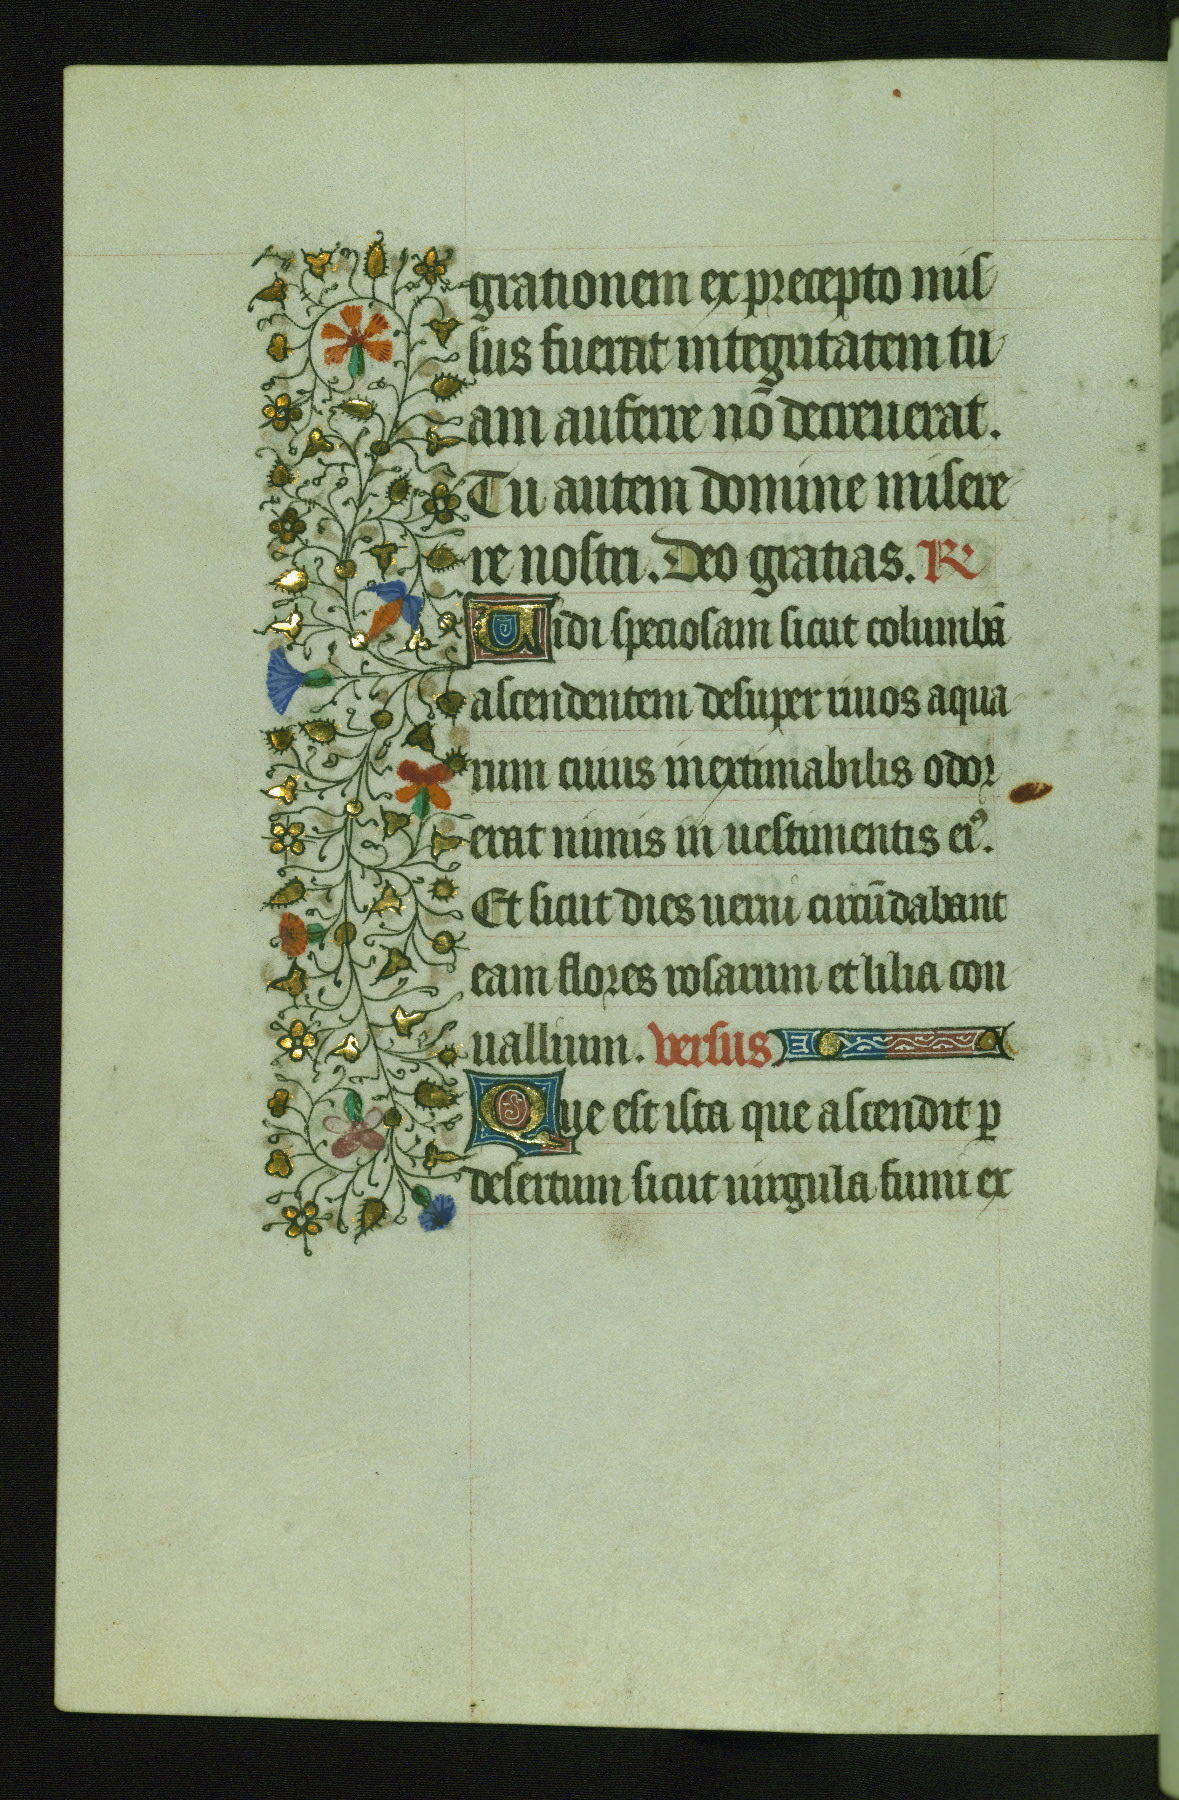 grationem ex precepto miſ
ſus fuerat integritatem tu
am auferre nō decreuerat.
Tu autem domine miſere
re noſtri. Deo gratias. R
Uidi ſpecioſam ſicut columbā
aſcendentem deſuper riuos aqua
rum cuius ineſtimabilis odor
erat nimis in ueſtimentis eiꝰ.
Et ſicut dies uerni circūdabant
eam flores roſarum et lilia con
uallium. verſus
Que eſt iſta que aſcendit ꝑ
deſertum ſicut uirgula fumi ex